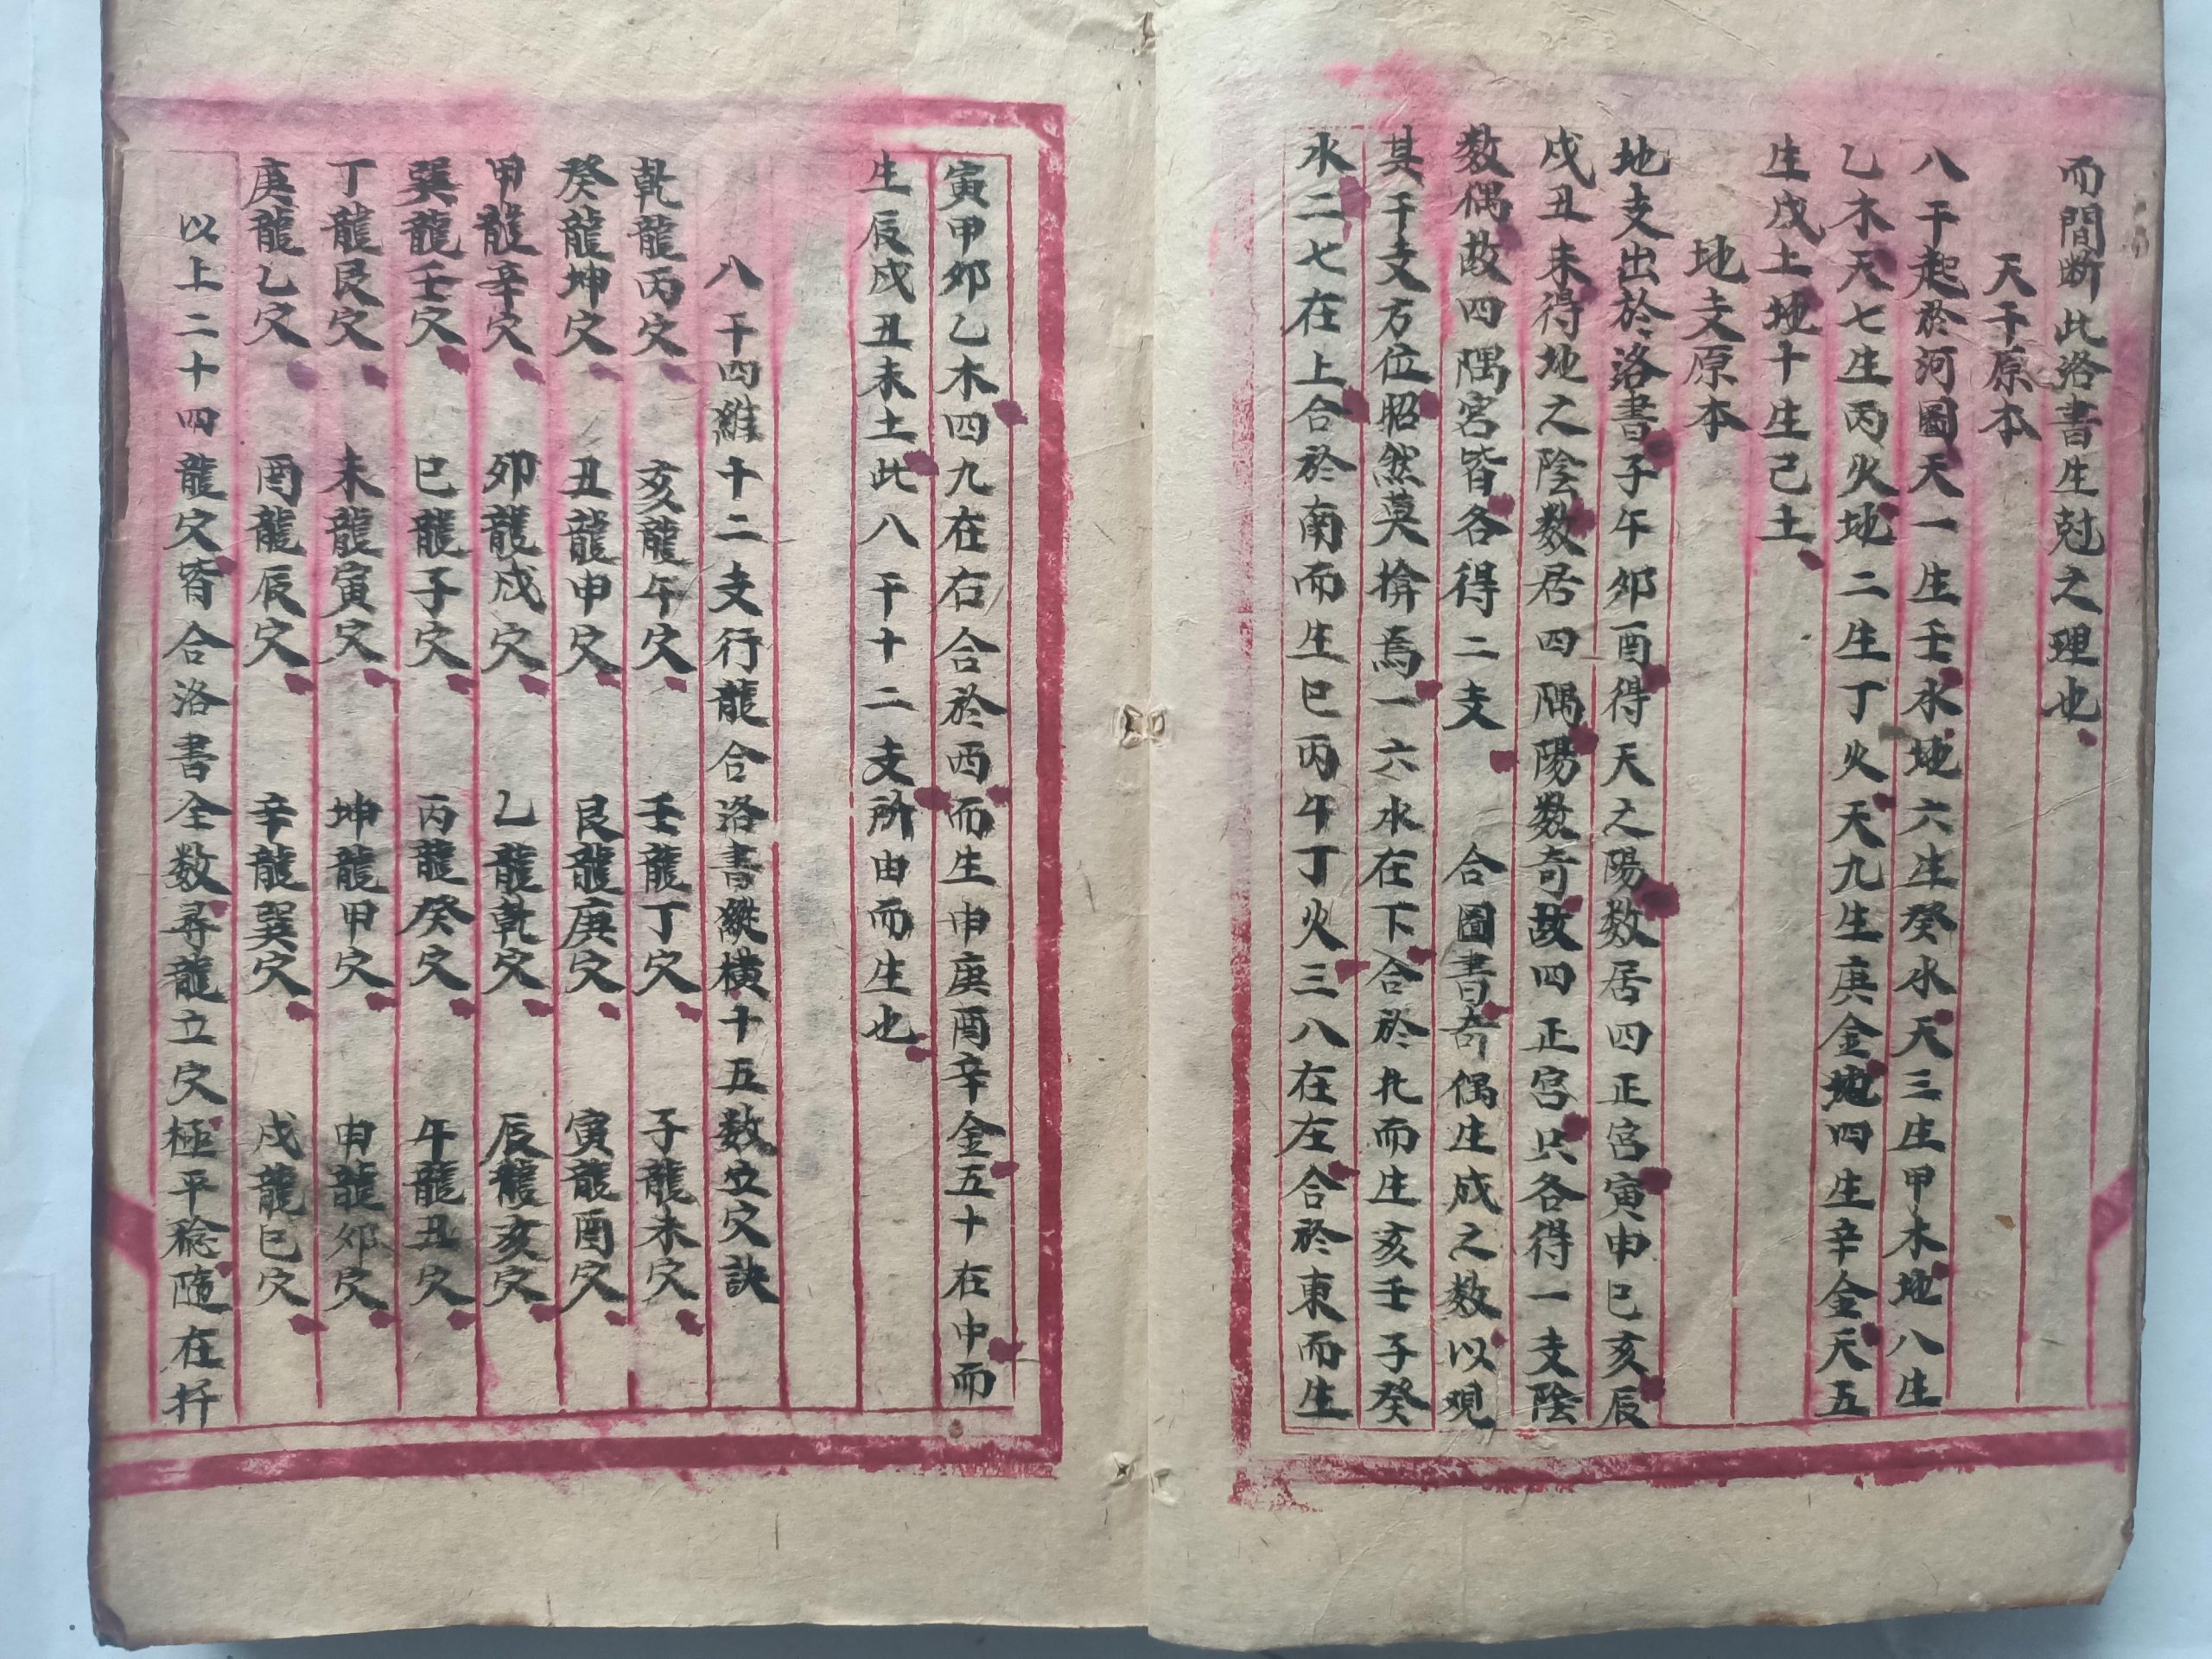 而間断此洛書生尅之理也
天干原本
八干起於河圖天一生壬水地六生癸水天三生甲木地八生
乙木天七生丙火地二生丁火天九生庚金地四生辛金天五
生戊土地十生己土
地支原本
地支出於洛書子午卯酉得天之陽数居四正宮寅申巳亥辰
戌丑未得地之陰数居四隅陽数奇故四正宮只各得一支陰
数偶故四隅宮皆各得二支 合圖書奇偶生成之数以覌
其干支方位昭然莫揜焉一六水在下合於北而生亥壬子癸
水二七在上合於南而生巳丙午丁火三八在左合於東而生
寅甲卯乙木四九在右合於西而生申庚酉辛金五十在中而
生辰戌丑未土此八干十二支所由而生也
八干四維十二支行龍合洛書縱横十五数立穴訣
乾龍丙穴 亥龍午穴 壬龍丁穴 子龍未穴
癸龍坤穴 丑龍申穴 艮龍庚穴 寅龍酉穴
甲龍辛穴 卯龍戌穴 乙龍乾穴 辰龍亥穴
巽龍壬穴 巳龍子穴 丙龍癸穴 午龍丑穴
丁龍艮穴 未龍寅穴 坤龍甲穴 申龍卯穴
庚龍乙穴 酉龍辰穴 辛龍巽穴 戌龍巳穴
以上二十四龍穴皆合洛書全数尋龍立穴極平稳隨在扦